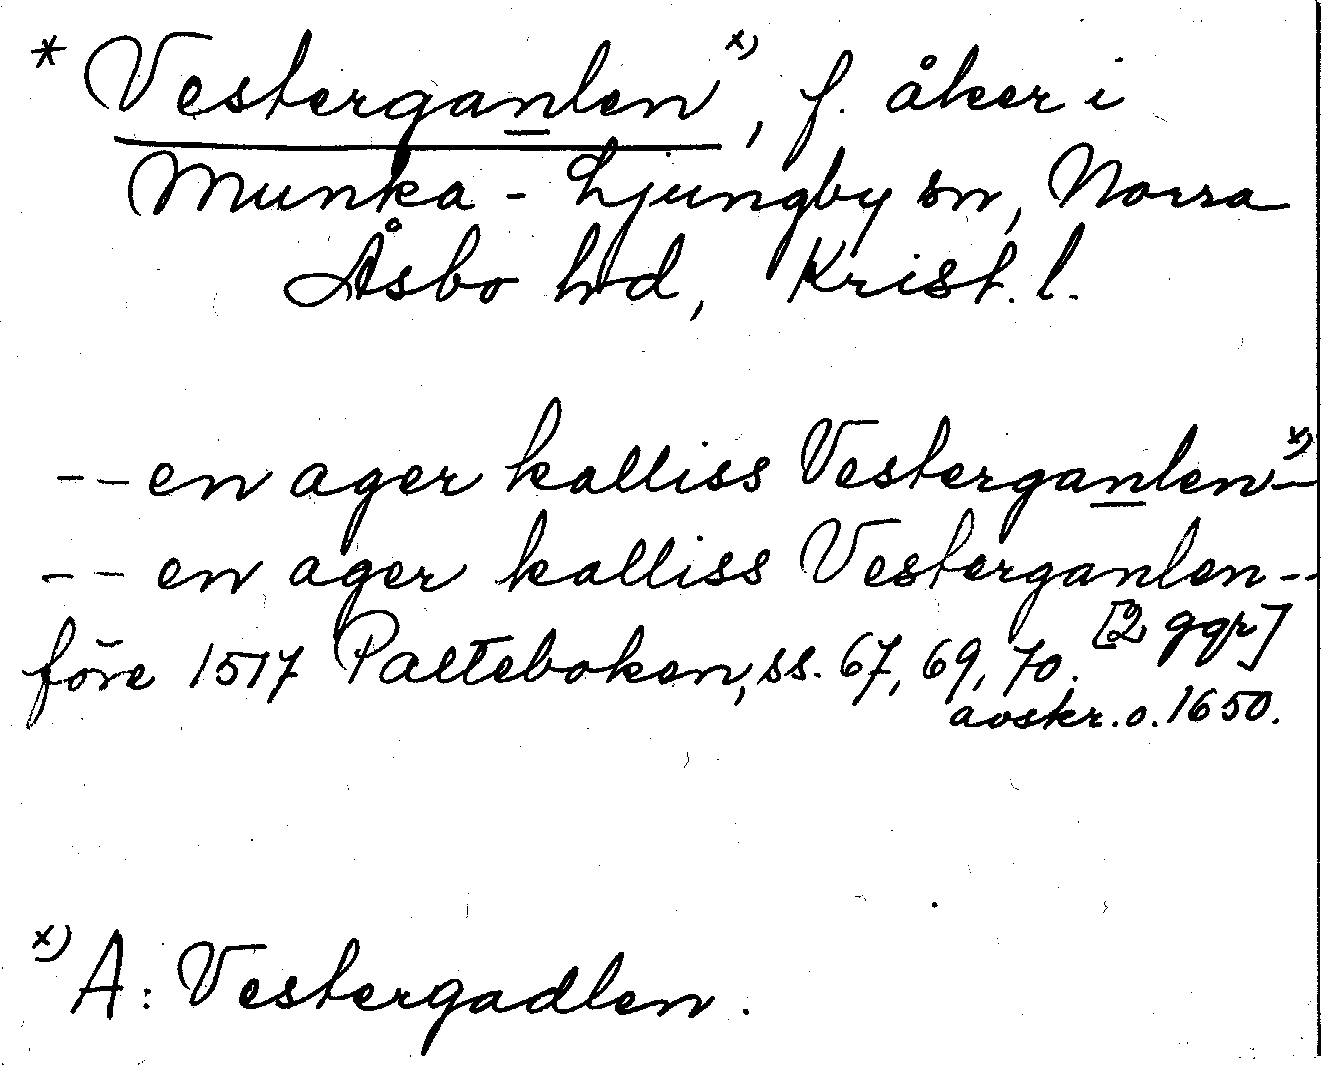 * Vesterganlen x), f. åker i
Munka-Ljungby sn, Norra
Åsbo hd, Krist. l.
-- en ager kalliss Vesterganlen x) -
-- en ager kalliss Vesterganlen --
[2 ggr]
före 1517 Palteboken, ss. 67, 69, 70.
avskr. o. 1650.
x) A: Vestergadlen.